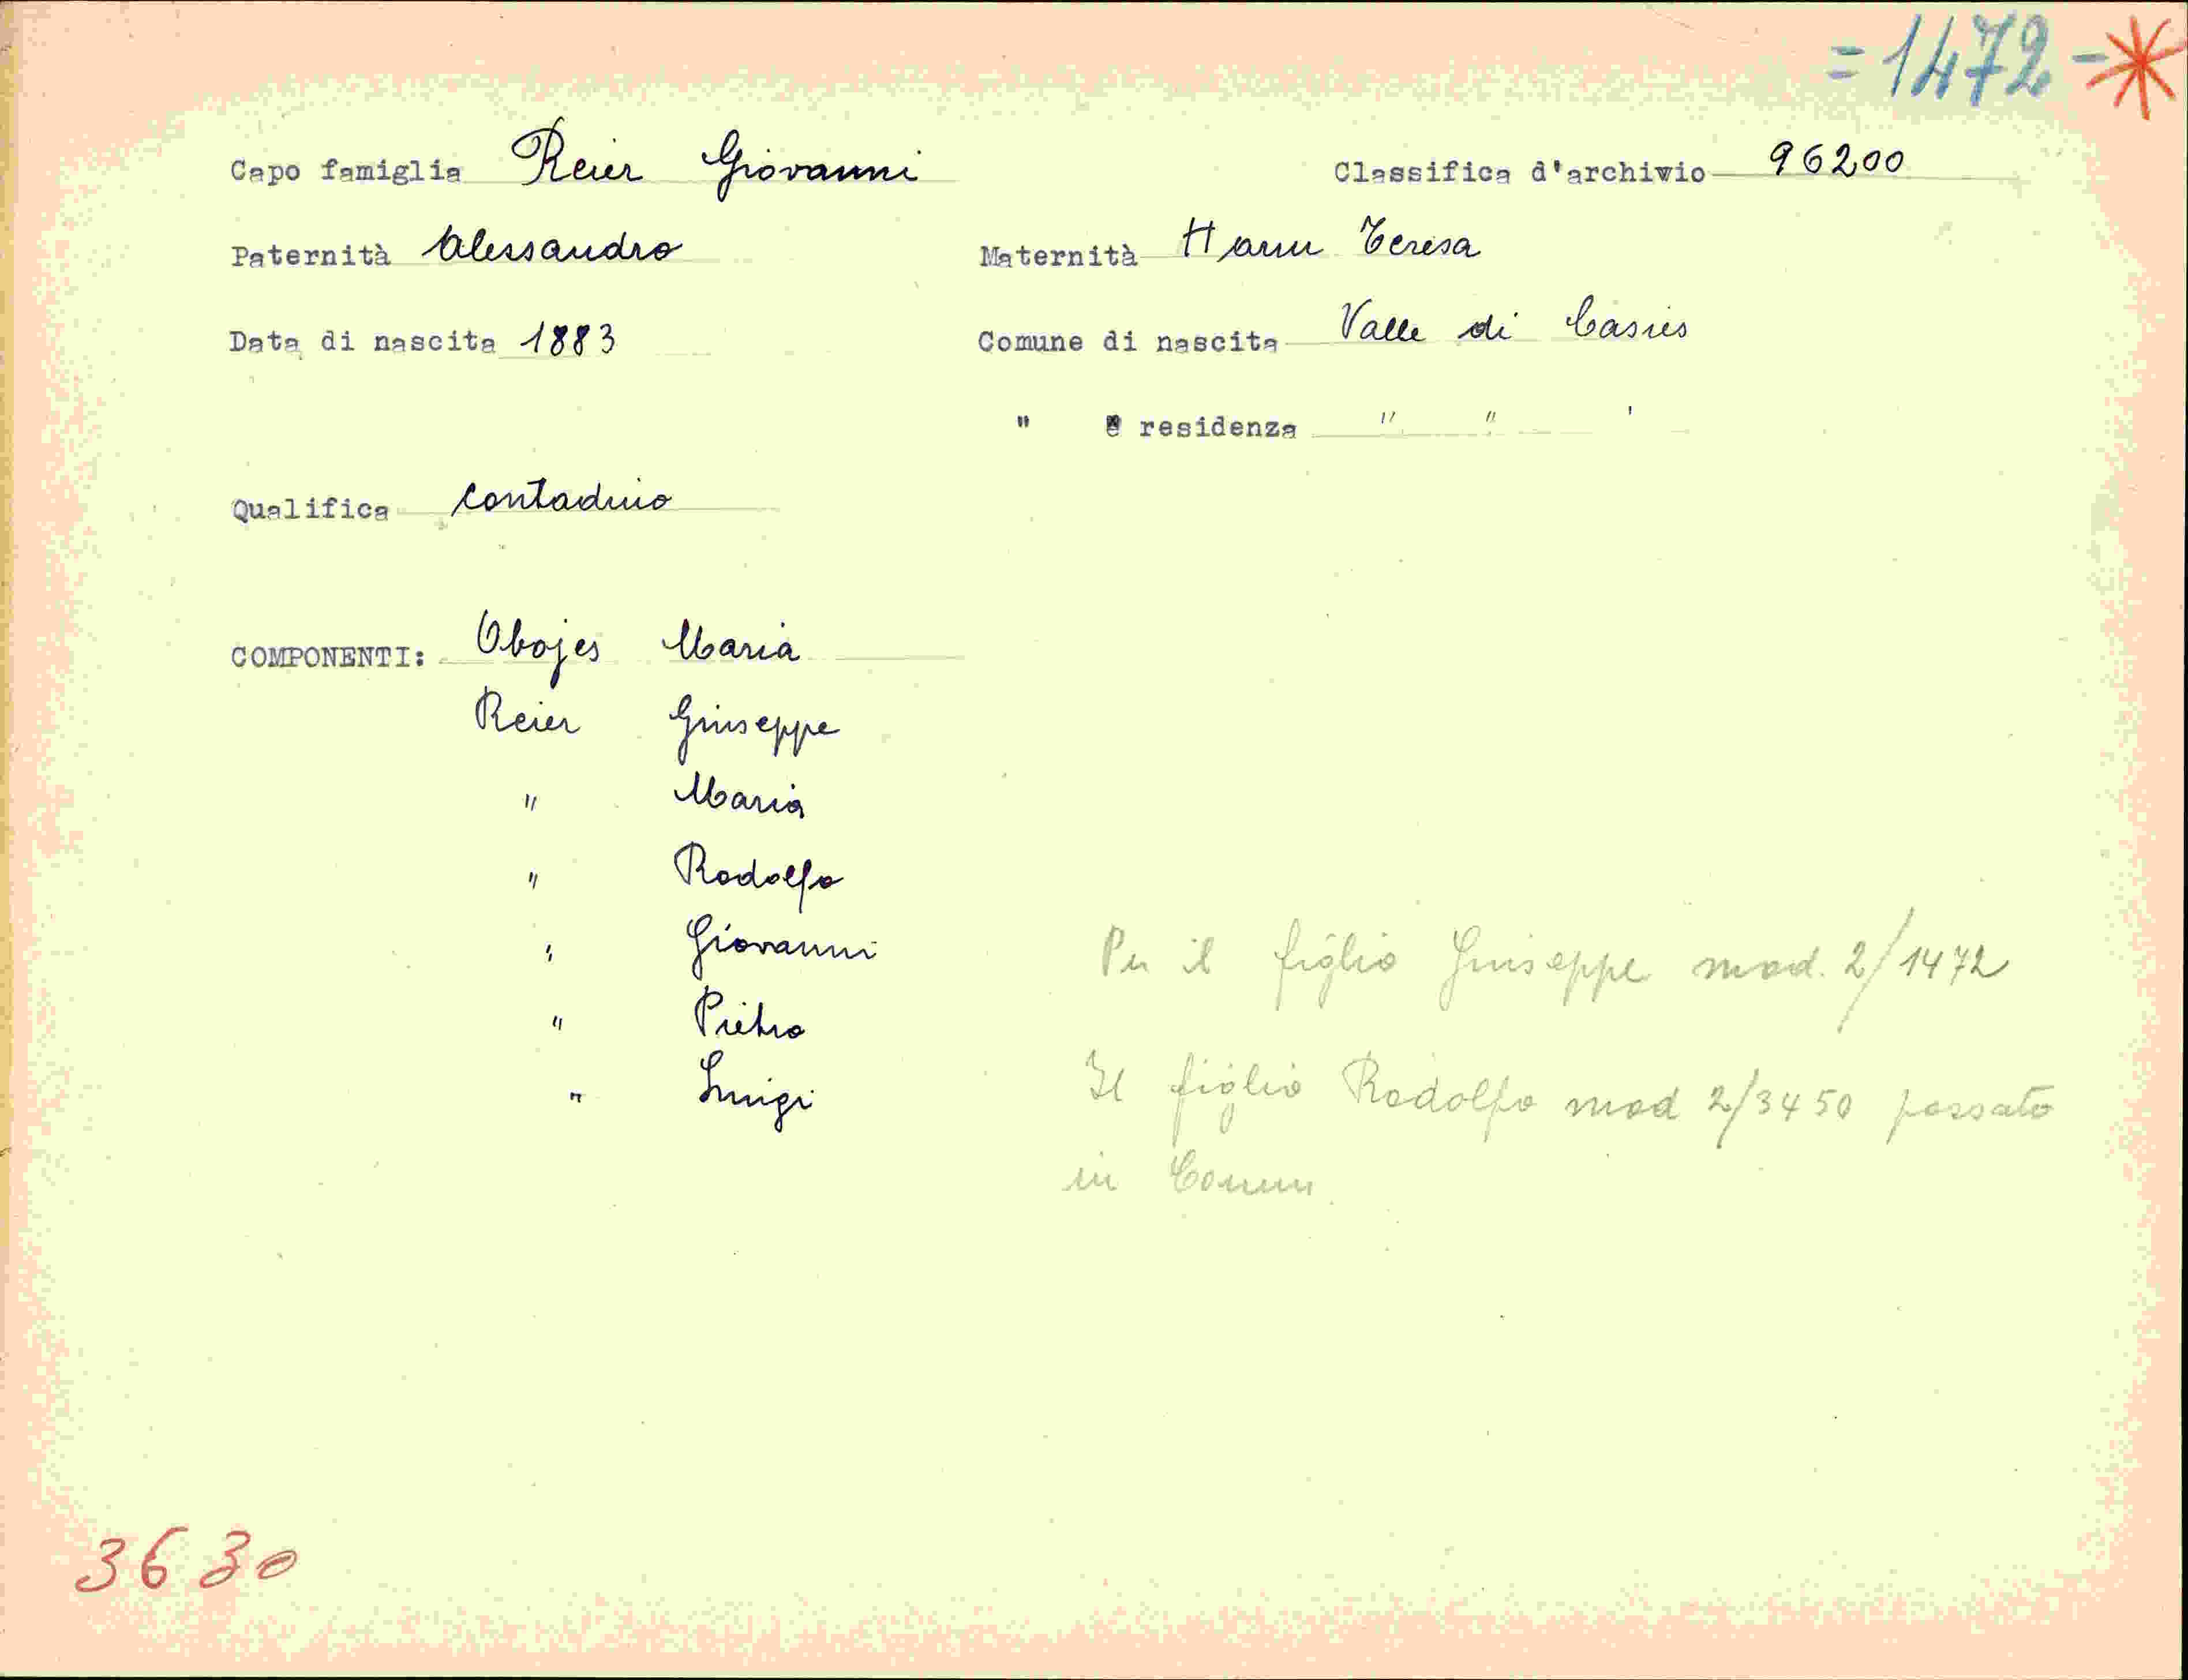 =1472-
Capo famiglia Reier Giovanni Classifica d'archivio 96200
Paternità Alessandro Maternità Hamm Teresa
Data di nascita 1883 Comune di nascita Valle di Casies
" e residenza " " '
Qualifica contadino
COMPONENTI: Obojes Maria
Reier Giuseppe
" Maria
" Rodolfo
" Giovanni
" Pietro
" Luigi
Per il figlio Giuseppe mod. 2/1472
Il figlio Rodolfo mod 2/3450 passato
in Comm.
3630